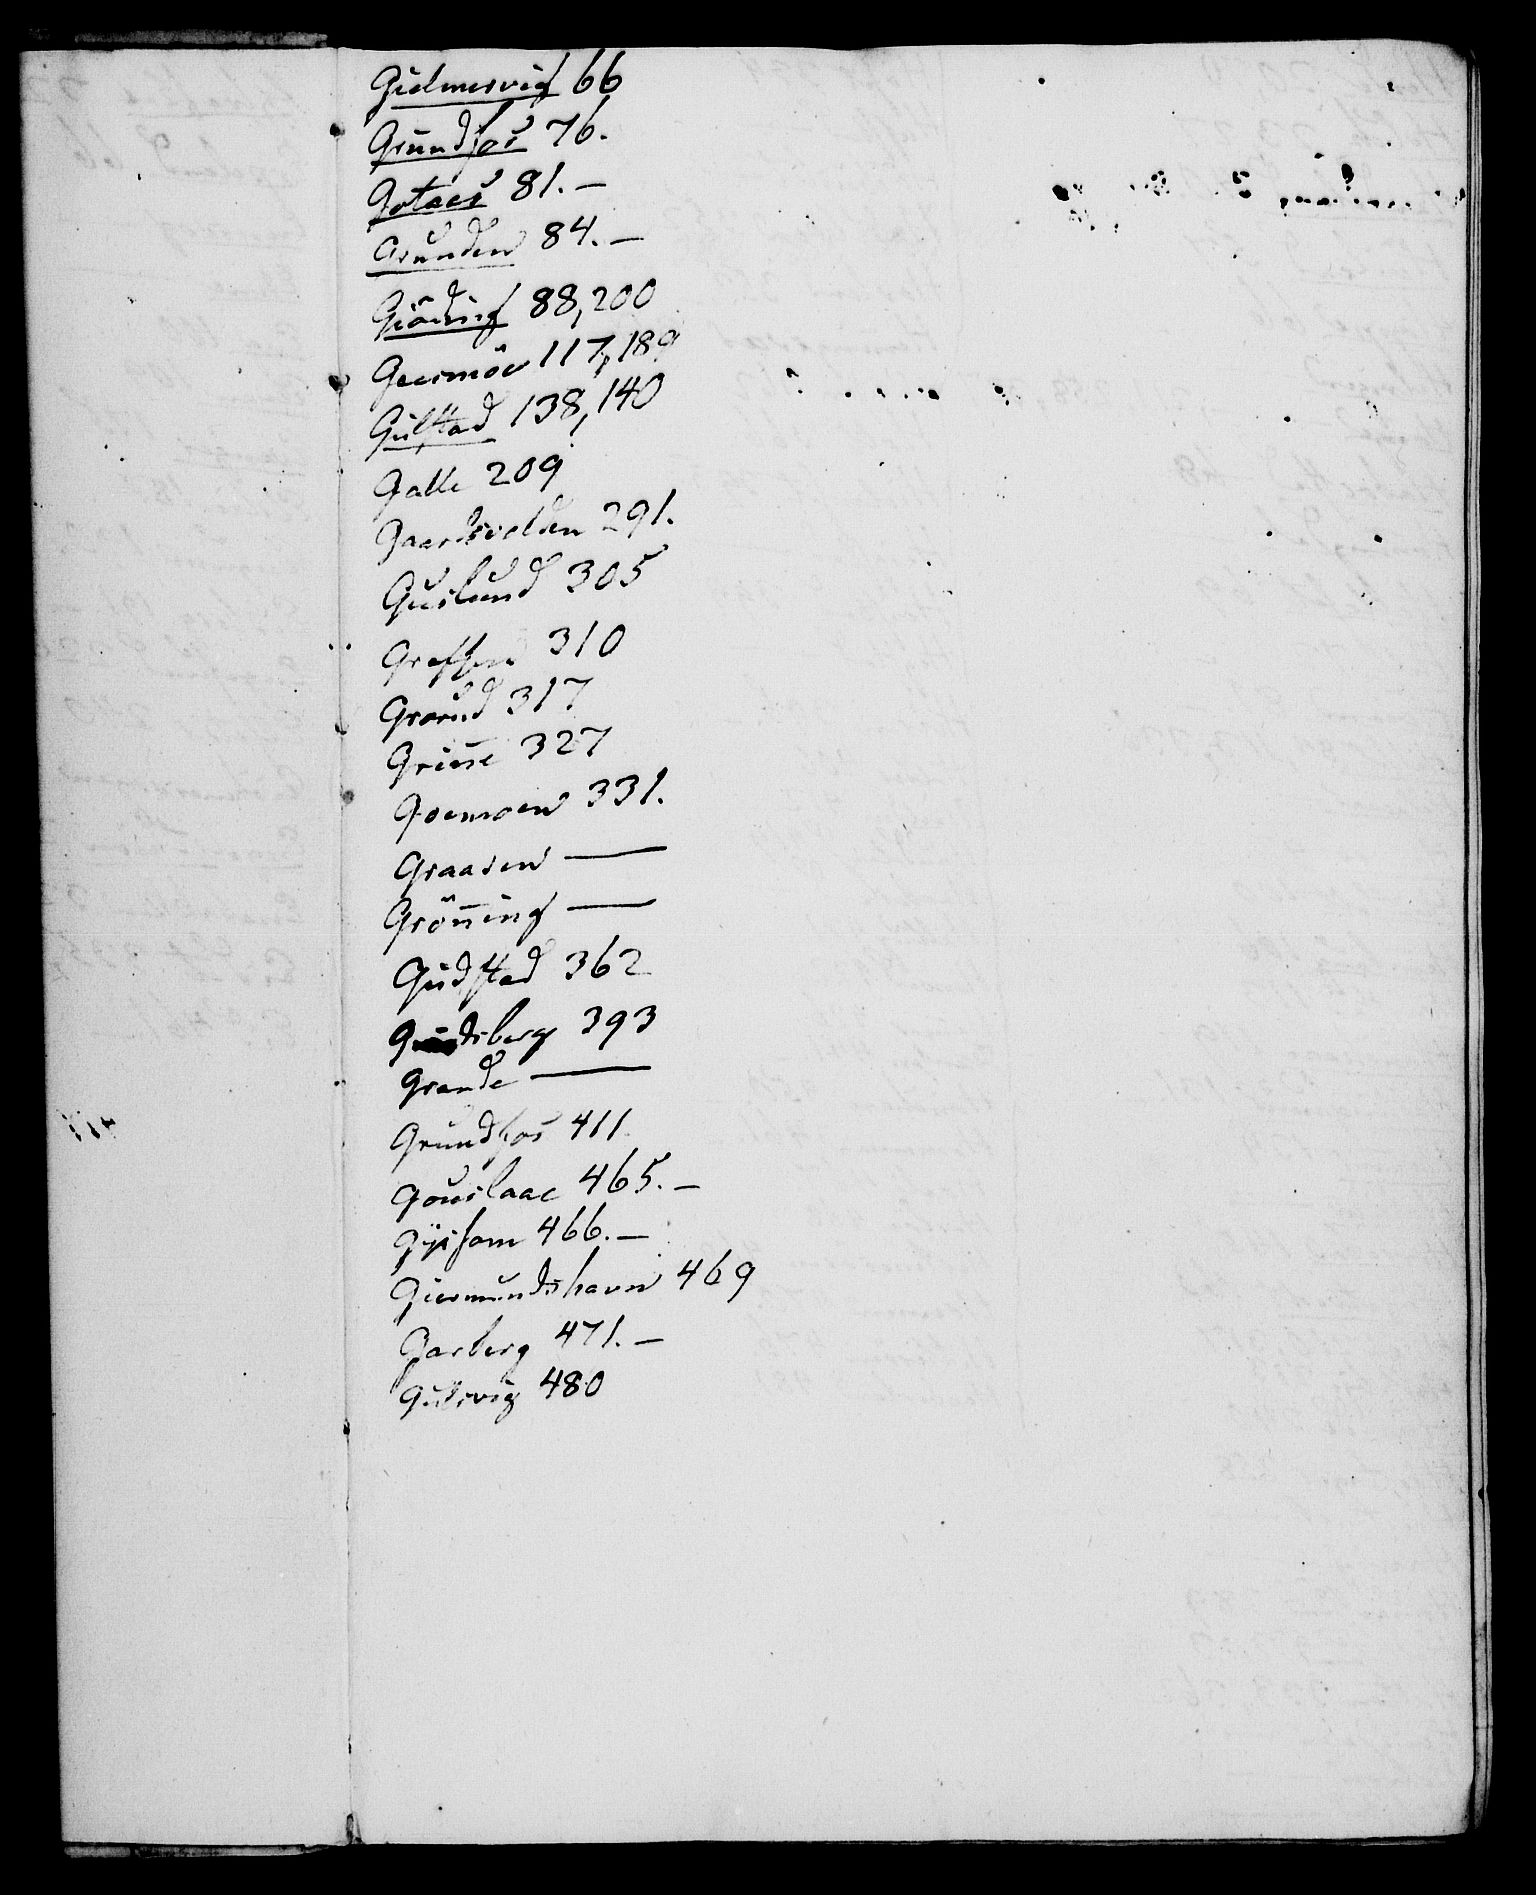 Gielmervig 66
Grundfos 76.
Gotaas 81. —
Grunden 84. —
Giöding 88, 200
Geermöe 117, 189
Gulstad 138, 140
Galle 209
Gaardsvolden 291.
Guslund 305
Greffsen 310
Grorud 317
Griise 327
Goemoen 331.
Graaren —
Grönning —
Gudstad 362
Gundsberg 393
Grande —
Grundfos 411
Gouslaae 465. —
Gÿsfom 466. —
Giermundshavn 469
Garberg 471. —
Gulsvig 480